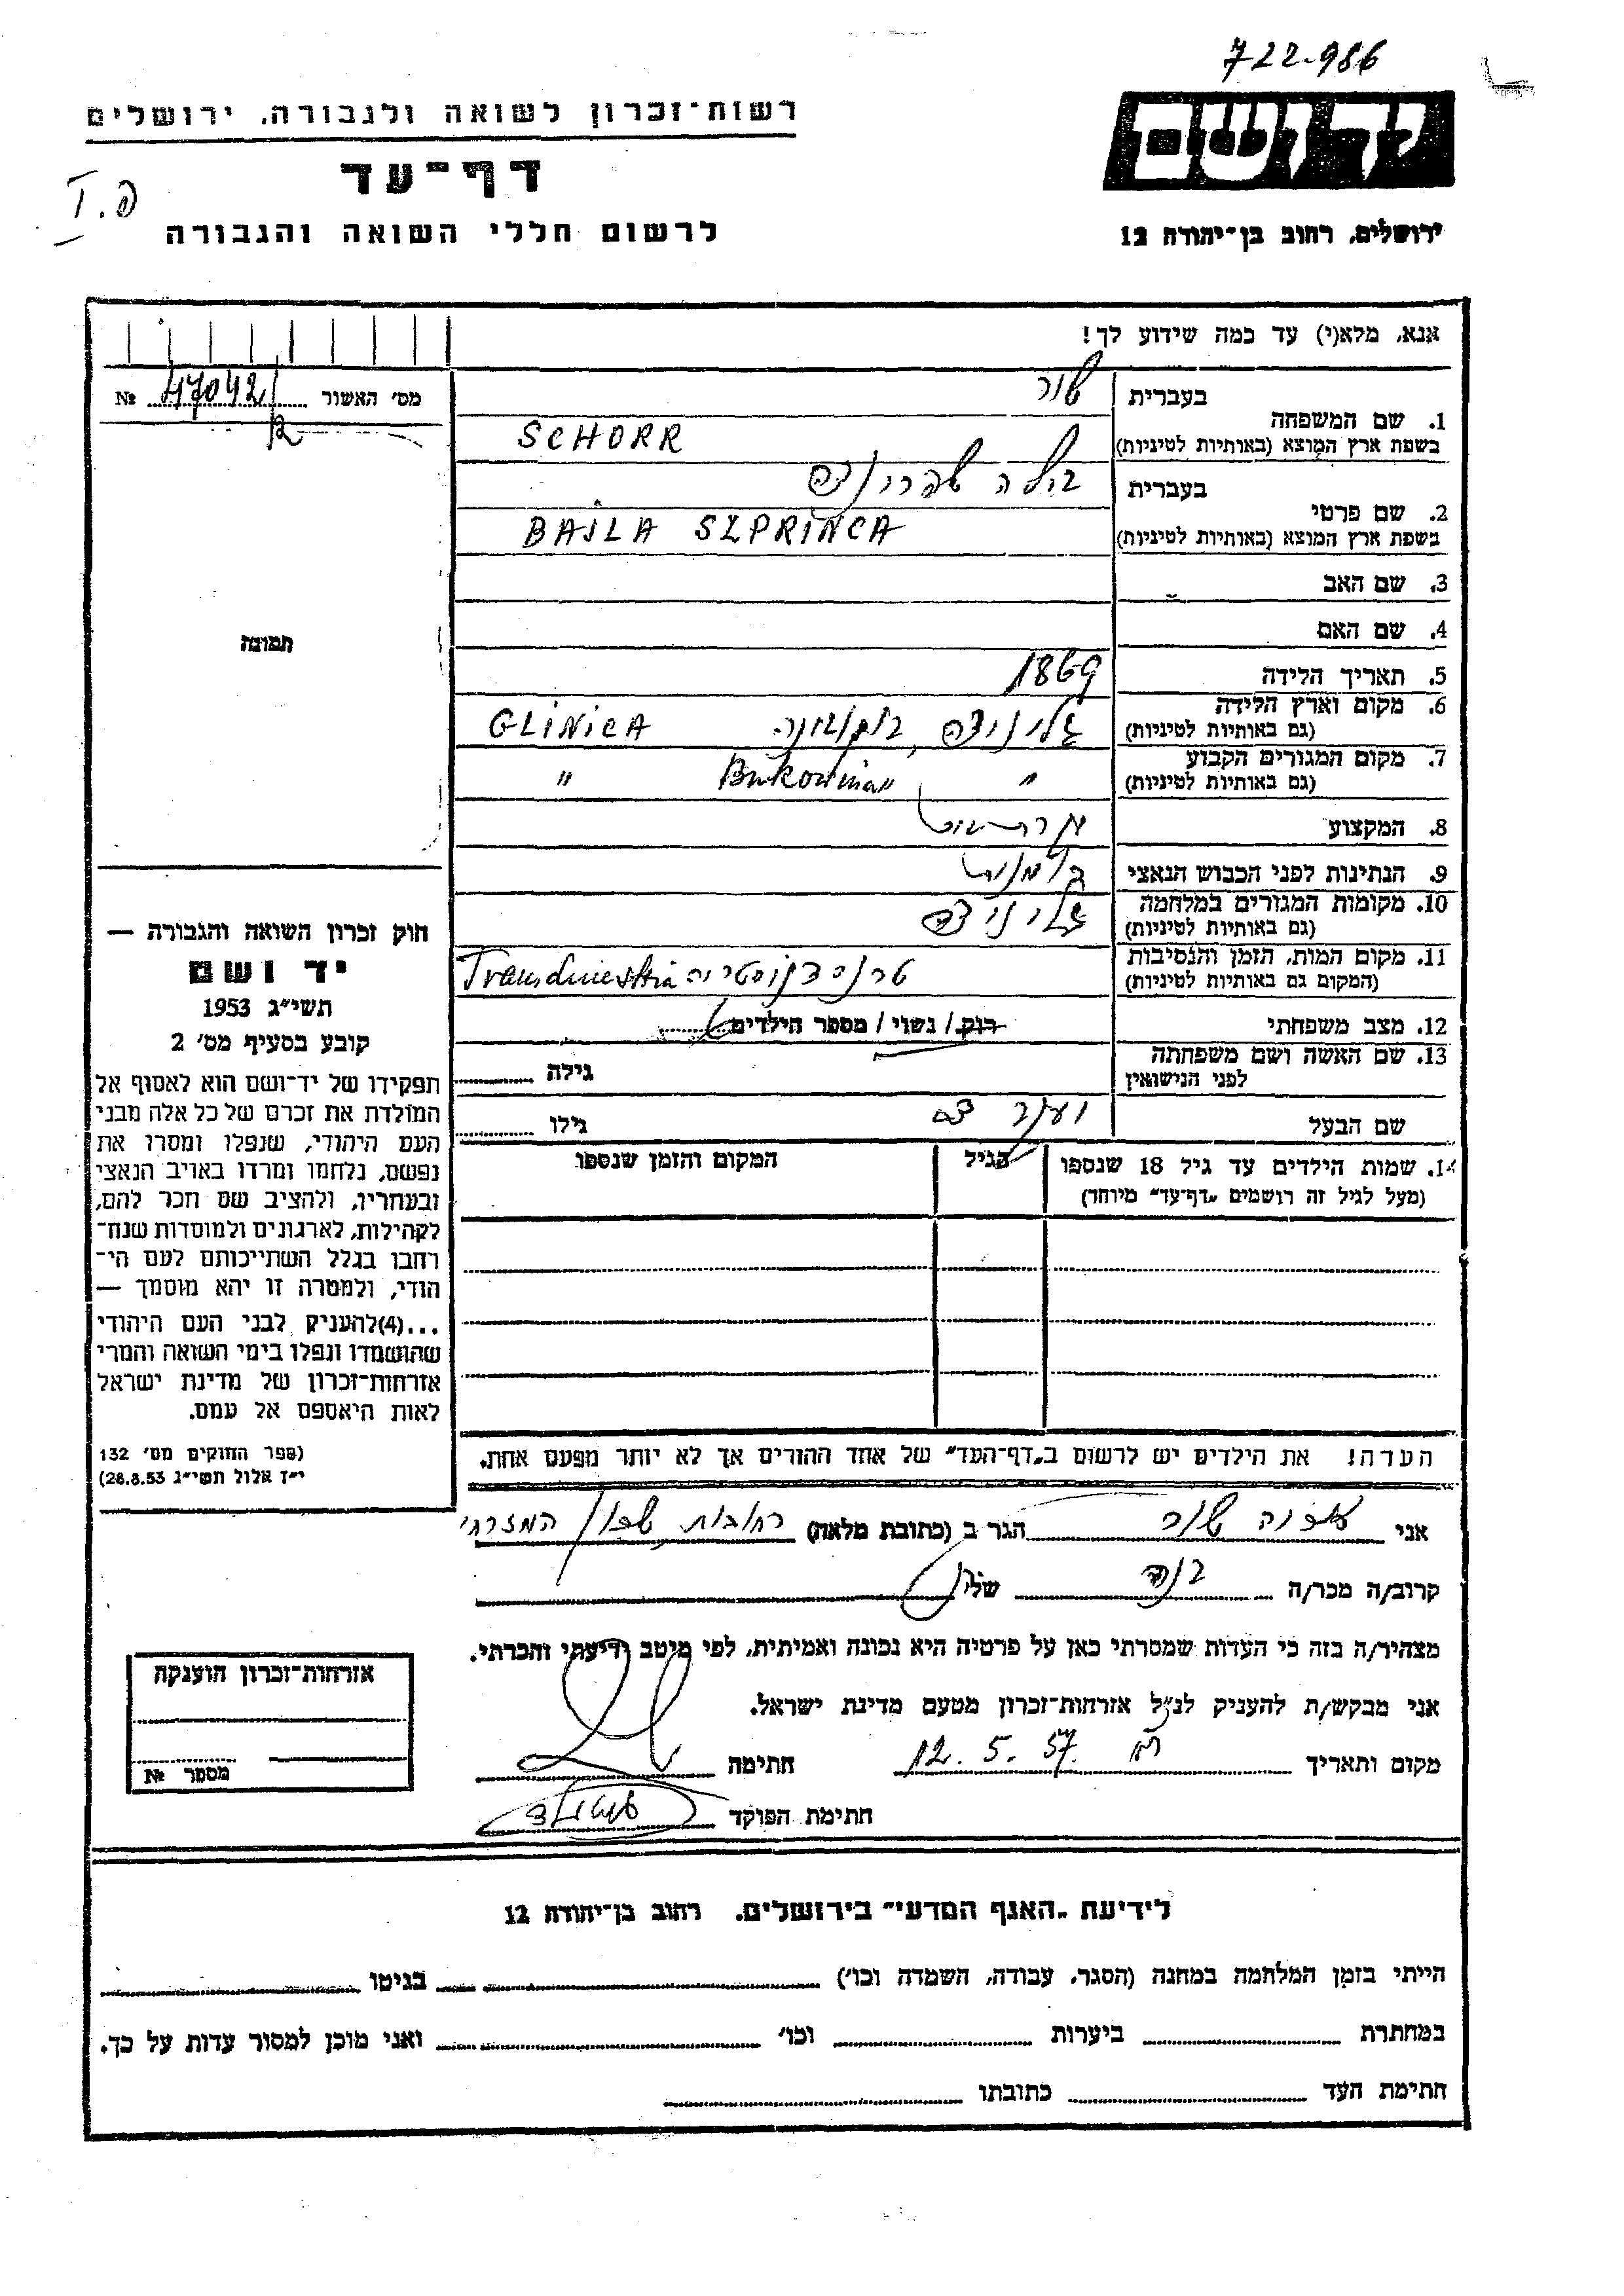 722-986
רשות-זכרון לשואה ולגבורה, ירושלים
דף-עד
לרשום חללי השואה והגבורה
ידושם
ירושלים, רחוב בן-יהודה 12
אנא, מלא(י) עד כמה שידוע לך!
מס' האשור 47042 №
1. שם המשפחה
בעברית שור
בשפת ארץ המוצא (באותיות לטיניות) SCHORR
2. שם פרטי
בעברית בילה שפרינצה
בשפת ארץ המוצא (באותיות לטיניות) BAJLA SZPRINCA
3. שם האב
4. שם האם
5. תאריך הלידה 1869
6. מקום וארץ הלידה
(גם באותיות לטיניות) גלינצה, בוקובינה GLINICA
7. מקום המגורים הקבוע
(גם באותיות לטיניות) " Bukowina "
8. המקצוע
9. הנתינות לפני הכבוש הנאצי
10. מקומות המגורים במלחמה
(גם באותיות לטיניות) גליניצה
11. מקום המות, הזמן והנסיבות
(המקום גם באותיות לטיניות) טרנסדניסטריה Transdniestria
12. מצב משפחתי רוק / נשוי / מספר הילדים
13. שם האשה ושם משפחתה
לפני הנישואין
גילה
שם הבעל
גילו
14. שמות הילדים עד גיל 18 שנספו
(מעל לגיל זה רושמים "דף-עד" מיוחד)
הגיל
המקום והזמן שנספו
הערה! את הילדים יש לרשום ב"דף-העד" של אחד ההורים אך לא יותר מפעם אחת.
תמונה
חוק זכרון השואה והגבורה —
יד ושם
תשי"ג 1953
קובע בסעיף מס' 2
תפקידו של יד-ושם הוא לאסוף אל
המולדת את זכרם של כל אלה מבני
העם היהודי, שנפלו ומסרו את
נפשם, נלחמו ומרדו באויב הנאצי
ובעוזריו, ולהציב שם וזכר להם,
לקהילות, לארגונים ולמוסדות שנח-
רבו בגלל השתייכותם לעם הי-
הודי, ולמטרה זו יהא מוסמך —
...(4)להעניק לבני העם היהודי
שהושמדו ונפלו בימי השואה והמרי
אזרחות-זכרון של מדינת ישראל
לאות היאספם אל עמם.
(ספר החוקים מס' 132
י"ז אלול תשי"ג 28.8.53)
אני שור הגר ב (כתובת מלאה) רחובות שכון המזרחי
קרוב/ה מכר/ה בנה של
מצהיר/ה בזה כי העדות שמסרתי כאן על פרטיה היא נכונה ואמיתית, לפי מיטב ידיעתי והכרתי.
אני מבקש/ת להעניק לנ"ל אזרחות-זכרון מטעם מדינת ישראל.
מקום ותאריך 12. 5. 57 חתימה
חתימת הפוקד
אזרחות-זכרון הוענקה
מספר №
לידיעת "האגף המדעי" בירושלים, רחוב בן-יהודה 12
הייתי בזמן המלחמה במחנה (הסגר, עבודה, השמדה וכו') בגיטו
במחתרת ביערות וכו' ואני מוכן למסור עדות על כך.
חתימת העד כתובתו